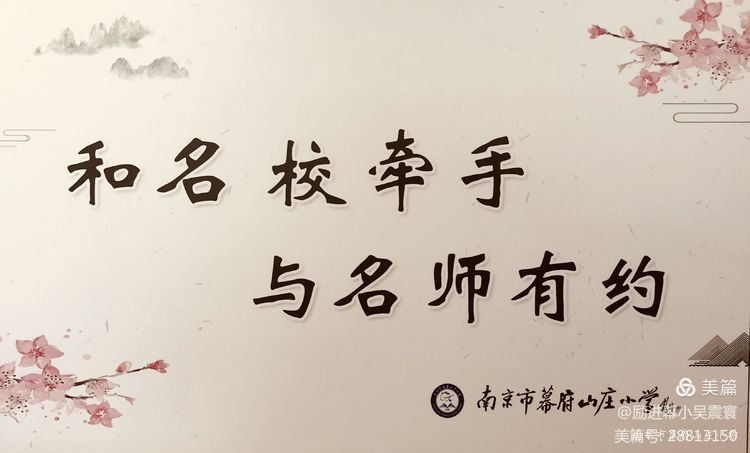 和名校牵手
与名师有约
南京市幕府山庄小学
美篇
@励进幕小吴震寰
美篇号:28813150